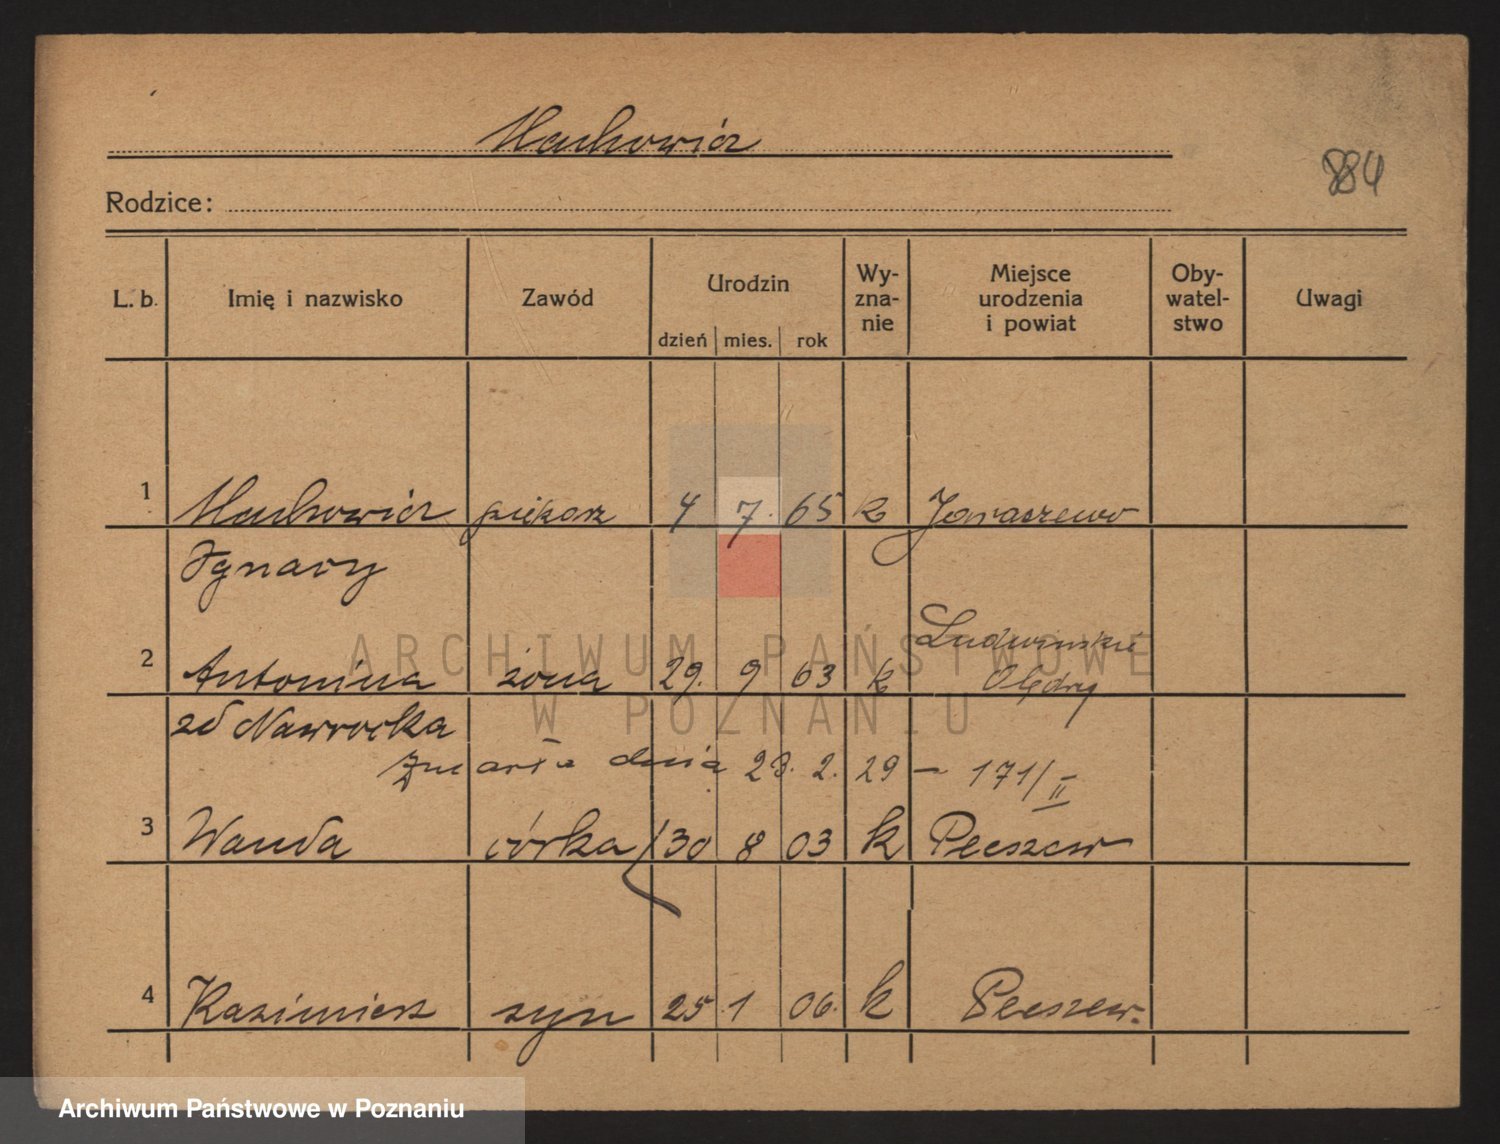 Machowicz
884
Rodzice:
L. b. Imię i nazwisko Zawód Urodzin dzień mies. rok Wy-zna-nie Miejsce urodzenia i powiat Oby-watel-stwo Uwagi
1 Machowicz piekarz 4 7. 65 k Jaraczewo
Ignacy
Ludwinskie
2 Antonina żona 29. 9 63 k Olędry
zd Nawrocka
Zmarła dnia 23. 2. 29 — 171/II
3 Wanda córka 30 8 03 k Pleszew
4 Kazimierz syn 25. 1 06. k Pleszew.
ARCHIWUM PAŃSTWOWE
W POZNANIU
Archiwum Państwowe w Poznaniu